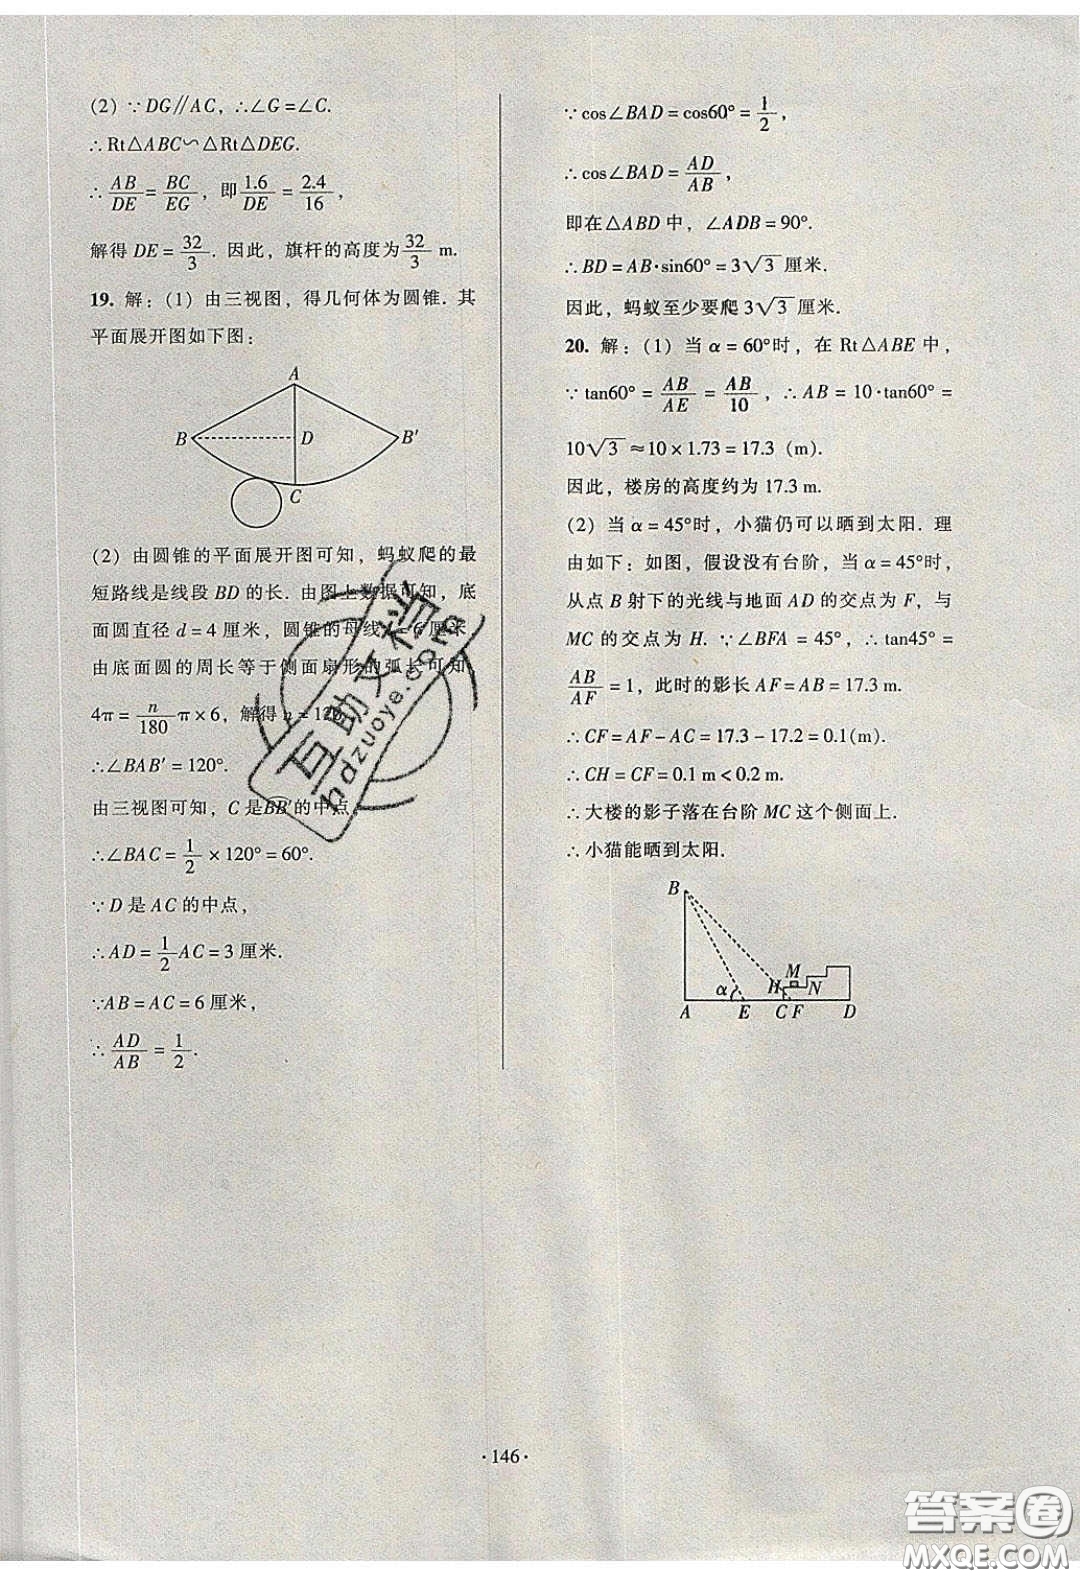 (2) ∵DG∥AC, ∴∠G=∠C.
∴Rt△ABC∽△Rt△DEG.
∴AB/DE=BC/EG, 即1.6/DE=2.4/16,
解得 DE=32/3. 因此, 旗杆的高度为32/3 m.
19. 解: (1) 由三视图, 得几何体为圆锥. 其
平面展开图如下图:
A
B
D
B′
C
(2) 由圆锥的平面展开图可知, 蚂蚁爬的最
短路线是线段 BD 的长. 由图上数据可知, 底
面圆直径 d=4 厘米, 圆锥的母线 =6 厘米.
由底面圆的周长等于侧面扇形的弧长可知,
4π=n/180π×6, 解得 n=120.
∴∠BAB′=120°.
由三视图可知, C 是BB′的中点.
∴∠BAC=1/2×120°=60°.
∵D 是 AC 的中点,
∴AD=1/2AC=3 厘米.
∵AB=AC=6 厘米,
∴AD/AB=1/2.
∵cos∠BAD=cos60°=1/2,
∴cos∠BAD=AD/AB,
即在△ABD 中, ∠ADB=90°.
∴BD=AB·sin60°=3√3厘米.
因此, 蚂蚁至少要爬 3√3厘米.
20. 解: (1) 当 α=60°时, 在 Rt△ABE 中,
∵tan60°=AB/AE=AB/10, ∴AB=10·tan60°=
10√3≈10×1.73=17.3 (m).
因此, 楼房的高度约为 17.3 m.
(2) 当 α=45°时, 小猫仍可以晒到太阳. 理
由如下: 如图, 假设没有台阶, 当 α=45°时,
从点 B 射下的光线与地面 AD 的交点为 F, 与
MC 的交点为 H. ∵∠BFA=45°, ∴tan45°=
AB/AF=1, 此时的影长 AF=AB=17.3 m.
∴CF=AF-AC=17.3-17.2=0.1(m).
∴CH=CF=0.1 m<0.2 m.
∴大楼的影子落在台阶 MC 这个侧面上.
∴小猫能晒到太阳.
B
M
H N
α
A E C F D
互助文档
hdzuoye.com
·146·
答案圈
MXQE.COM